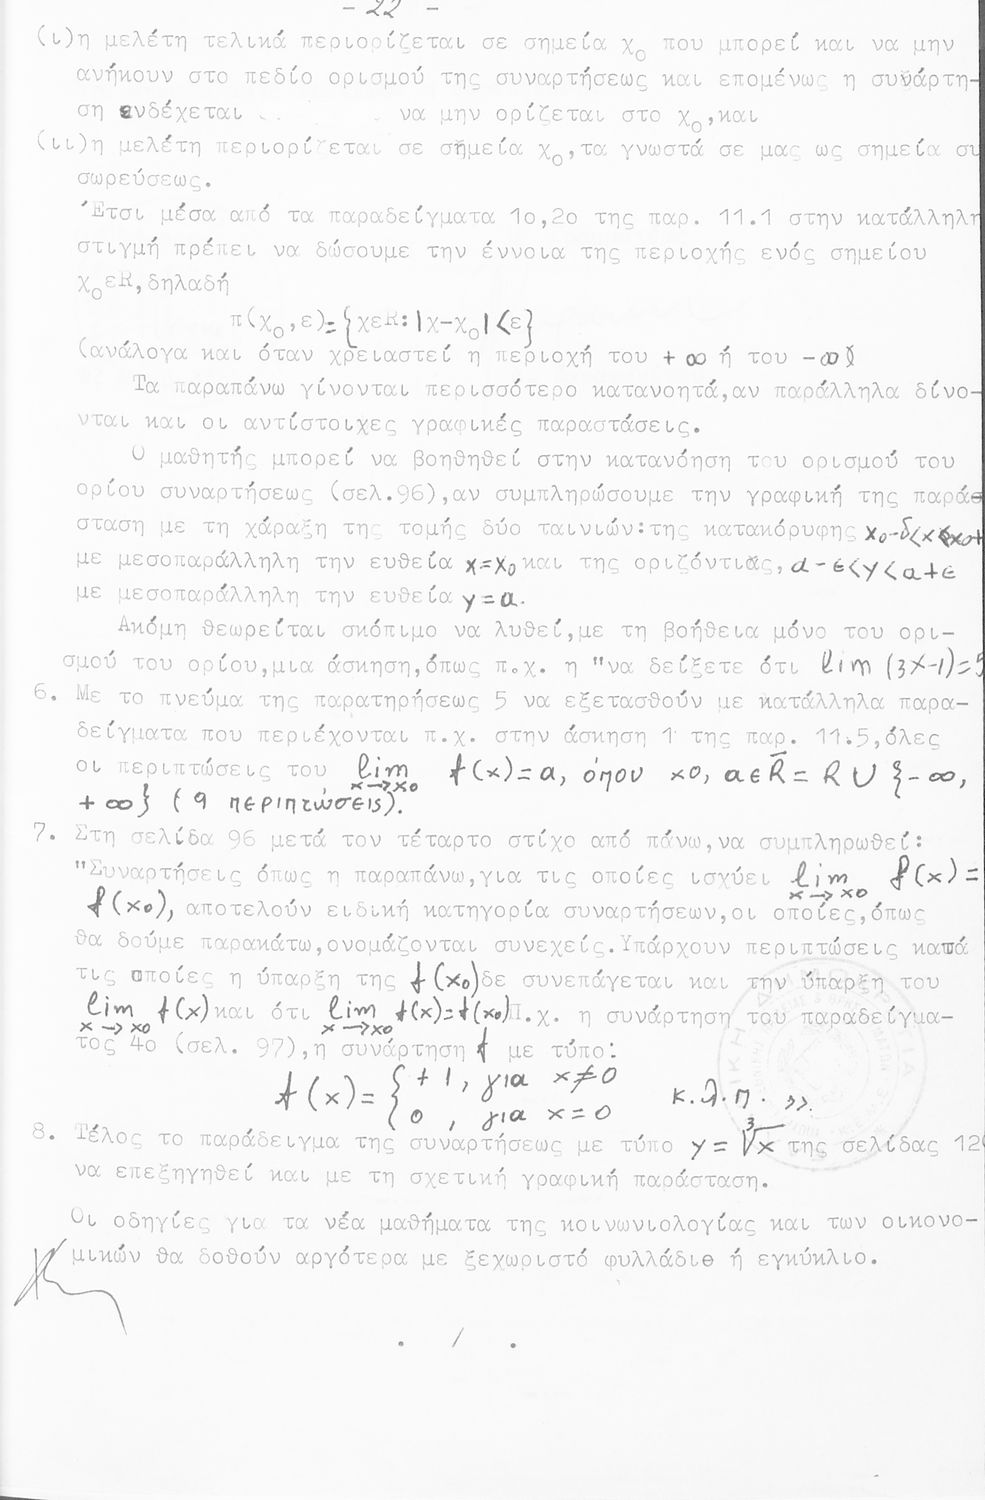 - 22 -
(ι)η μελέτη τελικά περιορίζεται σε σημεία χ₀ που μπορεί και να μην
ανήκουν στο πεδίο ορισμού της συναρτήσεως και επομένως η συνάρτη-
ση ενδέχεται να μην ορίζεται στο χ₀,και
(ιι)η μελέτη περιορίζεται σε σημεία χ₀,τα γνωστά σε μας ως σημεία συ
σωρεύσεως.
Έτσι μέσα από τα παραδείγματα 1ο,2ο της παρ. 11.1 στην κατάλληλη
στιγμή πρέπει να δώσουμε την έννοια της περιοχής ενός σημείου
χ₀εR,δηλαδή
π(χ₀,ε)={χεR:|χ-χ₀|<ε}
(ανάλογα και όταν χρειαστεί η περιοχή του +∞ ή του -∞)
Τα παραπάνω γίνονται περισσότερο κατανοητά,αν παράλληλα δίνο-
νται και οι αντίστοιχες γραφικές παραστάσεις.
Ο μαθητής μπορεί να βοηθηθεί στην κατανόηση του ορισμού του
ορίου συναρτήσεως (σελ.96),αν συμπληρώσουμε την γραφική της παρά-
σταση με τη χάραξη της τομής δύο ταινιών:της κατακόρυφης x₀-δ<x<x₀+
με μεσοπαράλληλη την ευθεία x=x₀ και της οριζόντιας, α-ε<y<α+ε
με μεσοπαράλληλη την ευθεία y=α.
Ακόμη θεωρείται σκόπιμο να λυθεί,με τη βοήθεια μόνο του ορι-
σμού του ορίου,μια άσκηση,όπως π.χ. η "να δείξετε ότι lim (3x-1)=5
6. Με το πνεύμα της παρατηρήσεως 5 να εξετασθούν με κατάλληλα παρα-
δείγματα που περιέχονται π.χ. στην άσκηση 1 της παρ. 11.5,όλες
οι περιπτώσεις του lim f(x)=α, όπου x₀, α∈R̄= R ∪ {-∞,
x→x₀
+∞} (9 περιπτώσεις).
7. Στη σελίδα 96 μετά τον τέταρτο στίχο από πάνω,να συμπληρωθεί:
"Συναρτήσεις όπως η παραπάνω,για τις οποίες ισχύει lim f(x)=
x→x₀
f(x₀), αποτελούν ειδική κατηγορία συναρτήσεων,οι οποίες,όπως
θα δούμε παρακάτω,ονομάζονται συνεχείς.Υπάρχουν περιπτώσεις κατά
τις οποίες η ύπαρξη της f(x₀) δε συνεπάγεται και την ύπαρξη του
lim f(x) και ότι lim f(x)=f(x₀) Π.χ. η συνάρτηση του παραδείγμα-
x→x₀ x→x₀
τος 4ο (σελ. 97),η συνάρτηση f με τύπο:
f(x)= { +1, για x≠0
0, για x=0 κ.λ.π. ».
8. Τέλος το παράδειγμα της συναρτήσεως με τύπο y=∛x της σελίδας 120
να επεξηγηθεί και με τη σχετική γραφική παράσταση.
Οι οδηγίες για τα νέα μαθήματα της κοινωνιολογίας και των οικονο-
μικών θα δοθούν αργότερα με ξεχωριστό φυλλάδιο ή εγκύκλιο.
. / .